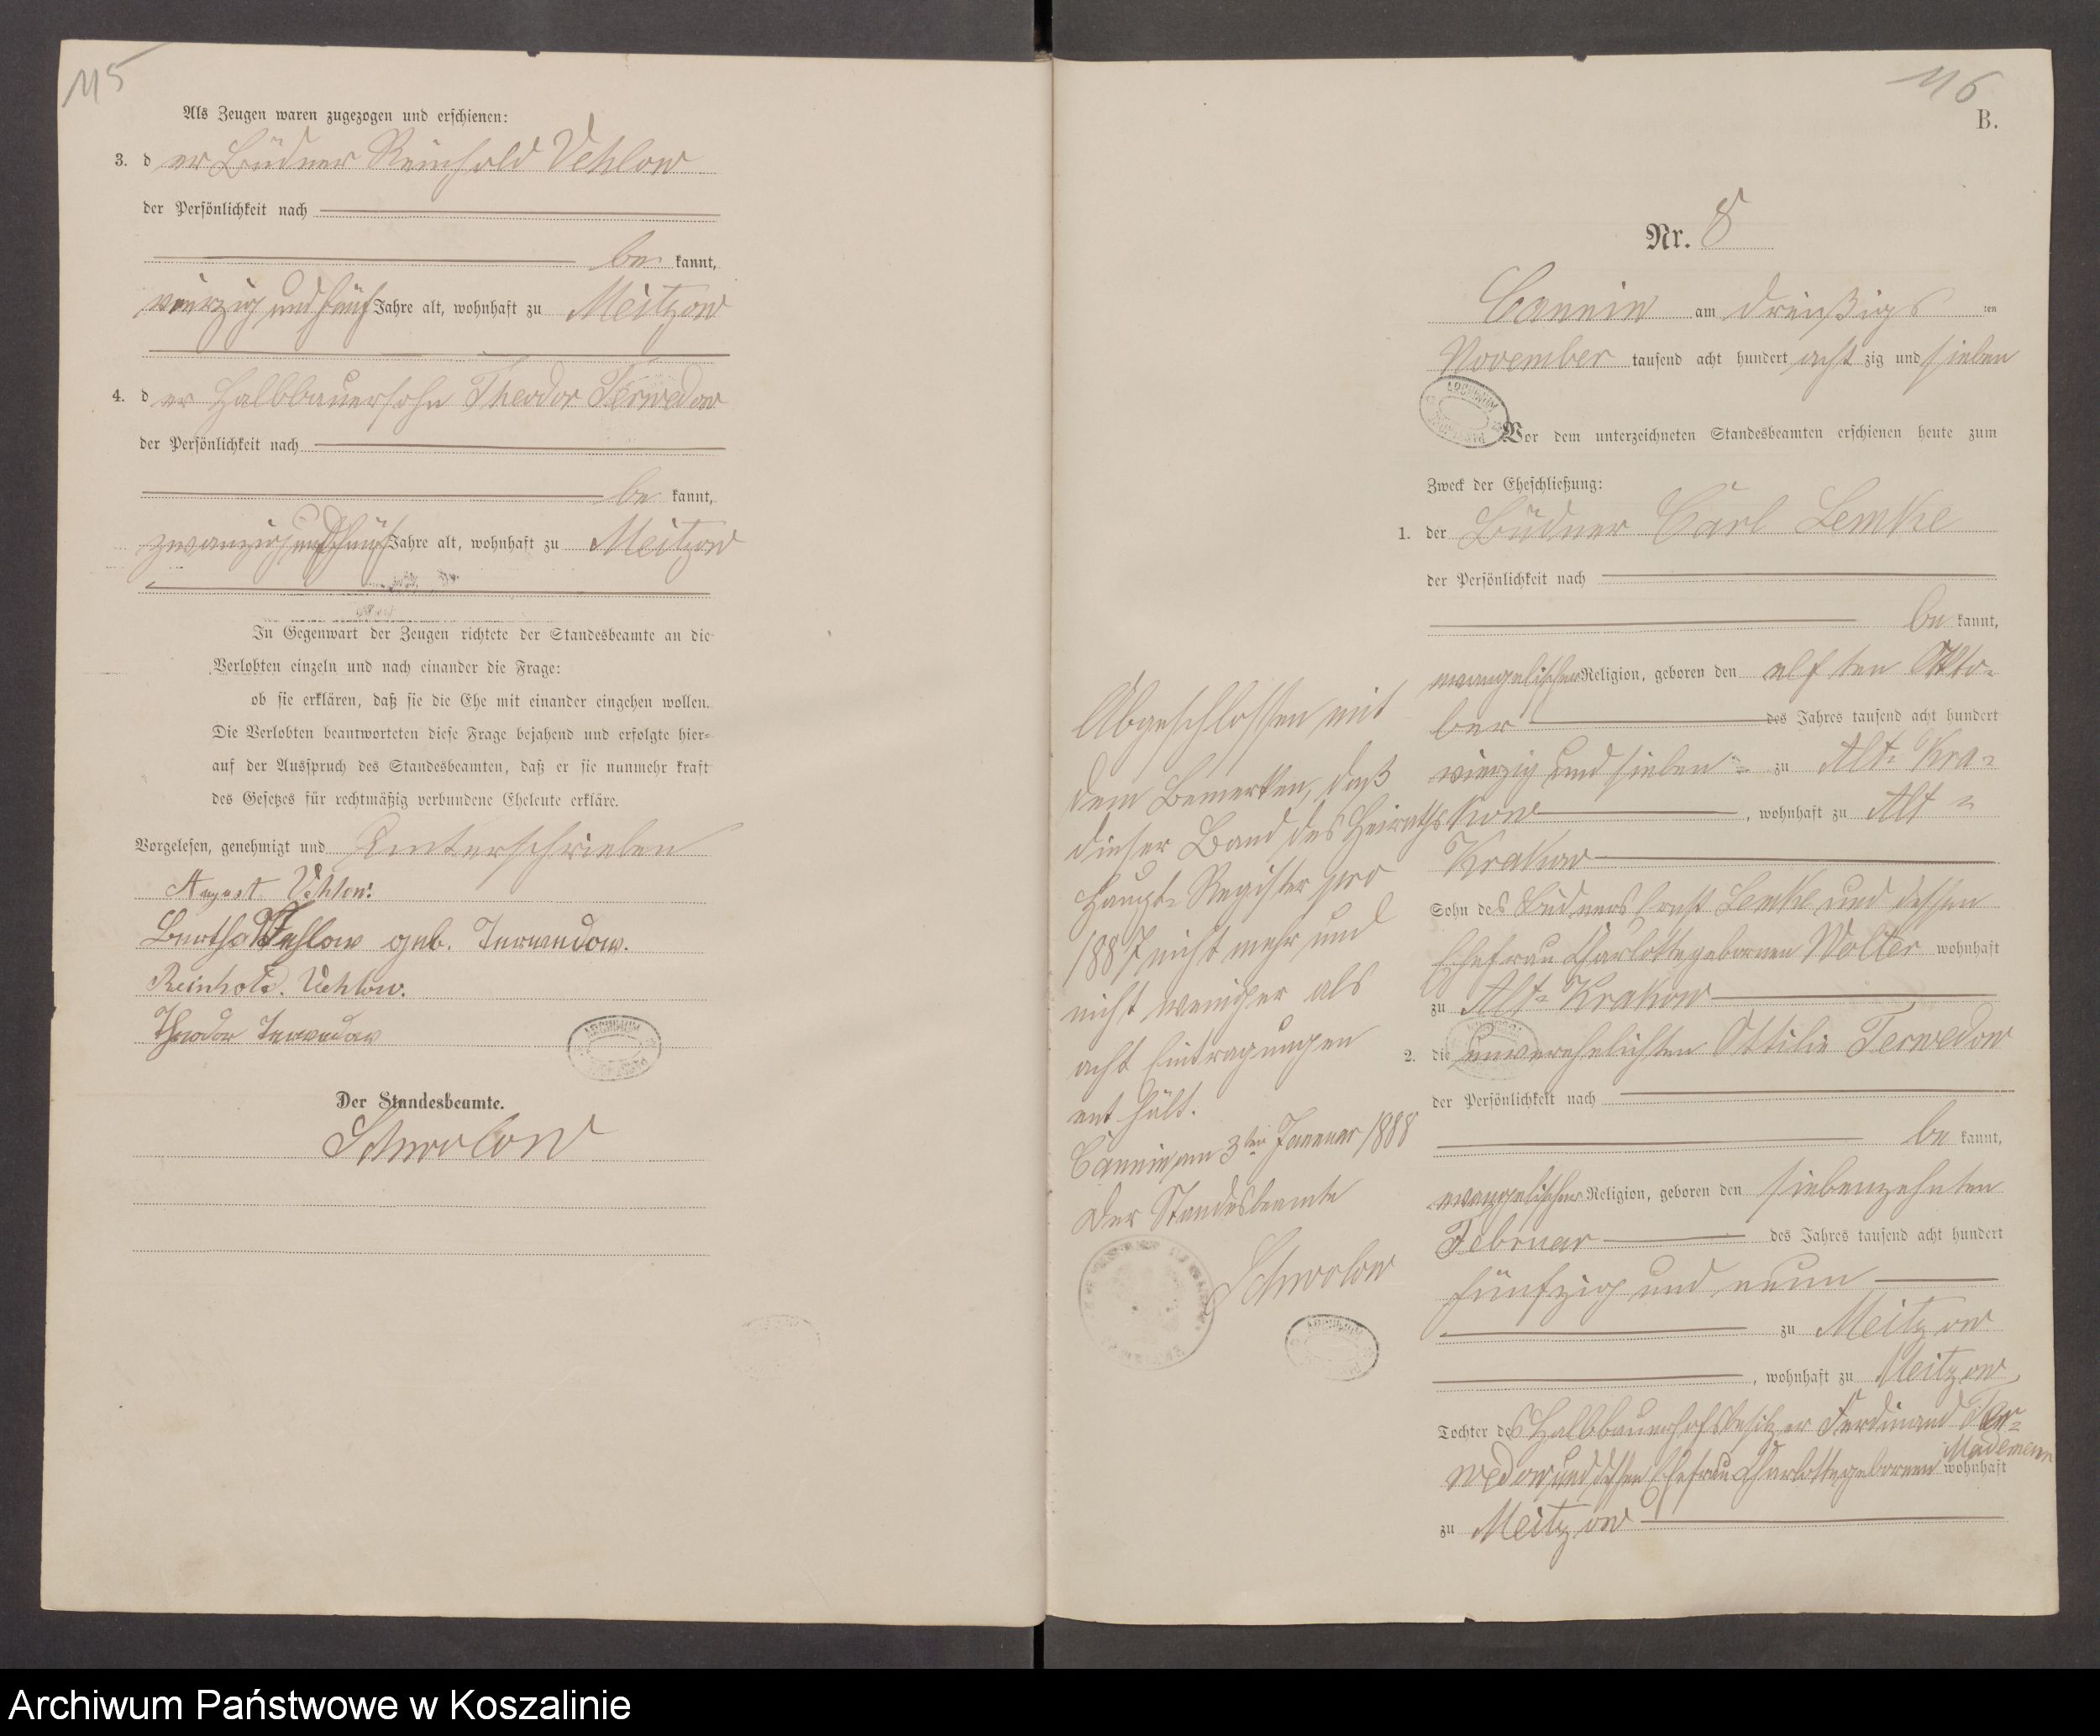 115
Als Zeugen waren zugezogen und erschienen:
3. d er Büdner Reinhold Vehlow
der Persönlichkeit nach
be kannt,
vierzig und fünf Jahre alt, wohnhaft zu Meitzow
4. d er Halbbauersohn Theodor Terwedow
der Persönlichkeit nach
be kannt,
zwanzig und fünf Jahre alt, wohnhaft zu Meitzow
In Gegenwart der Zeugen richtete der Standesbeamte an die
Verlobten einzeln und nach einander die Frage:
ob sie erklären, daß sie die Ehe mit einander eingehen wollen.
Die Verlobten beantworteten diese Frage bejahend und erfolgte hier=
auf der Ausspruch des Standesbeamten, daß er sie nunmehr kraft
des Gesetzes für rechtmäßig verbundene Eheleute erkläre.
Vorgelesen, genehmigt und Unterschrieben
August Vehlow.
Bertha Vehlow geb. Terwedow.
Reinhold. Vehlow.
Theodor Terwedow
Der Standesbeamte.
Schwolow
116
B.
Nr. 8
Cannin am dreißigs ten
November tausend acht hundert acht zig und sieben
Vor dem unterzeichneten Standesbeamten erschienen heute zum
Zweck der Eheschließung:
1. der Büdner Carl Lemke
der Persönlichkeit nach
be kannt,
evangelischer Religion, geboren den elf ten Okto=
ber des Jahres tausend acht hundert
vierzig und sieben = zu Alt= Kra=
kow , wohnhaft zu Alt =
Krakow
Sohn des Büdners Ernst Lemke und dessen
Ehefrau Charlotte gebornen Wolter wohnhaft
zu Alt= Krakow
2. die unverehelichten Ottilie Terwedow
der Persönlichkeit nach
be kannt,
evangelischer Religion, geboren den siebenzehnten
Februar des Jahres tausend acht hundert
fünfzig und neun
zu Meitzow
, wohnhaft zu Meitzow,
Tochter des Halbbauerhofsbesitzer Ferdinand Ter=
wedow und dessen Ehefrau Charlotte gebornen Mademann wohnhaft
zu Meitzow
Abgeschlossen mit
dem Bemerken, daß
dieser Band des Heiraths
Haupt= Register pro
1887 nicht mehr und
nicht weniger als
acht Eintragungen
ent hält.
Cannin, am 3ten Januar 1888
Der Standesbeamte
Schwolow
ARCHIWUM
Archiwum Państwowe w Koszalinie